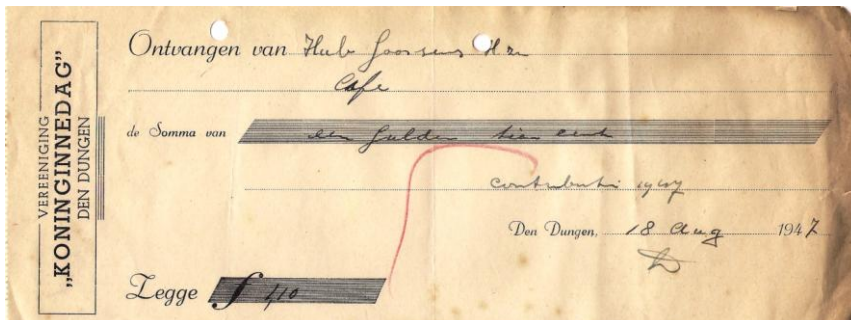 VEREENIGING
„KONINGINNEDAG”
DEN DUNGEN
Ontvangen van Hub Goossens Hzn
Cafe
de Somma van een gulden tien cent
contributie 1947
Den Dungen, 18 Aug 1947
Zegge f 1,10